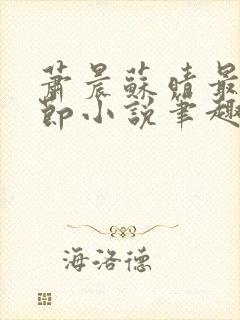 蕭晨蘇晴最
節小說筆趣
海洛德